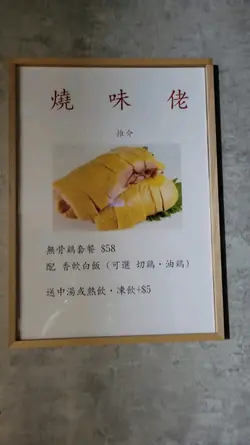 燒味佬
推介
無骨鷄套餐 $58
配 香軟白飯 (可選 切鷄·油鷄)
送中湯或熱飲·凍飲+$5